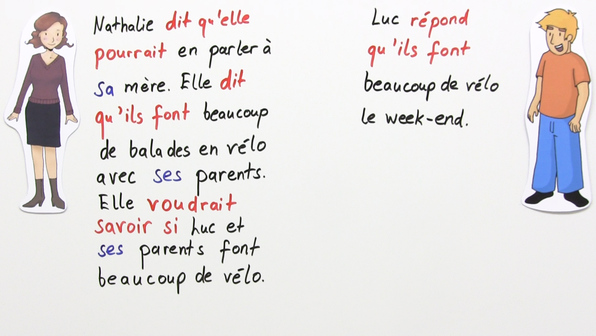 Nathalie dit qu'elle
pourrait en parler à
sa mère. Elle dit
qu'ils font beaucoup
de balades en vélo
avec ses parents.
Elle voudrait
savoir si Luc et
ses parents font
beaucoup de vélo.
Luc répond
qu'ils font
beaucoup de vélo
le week-end.